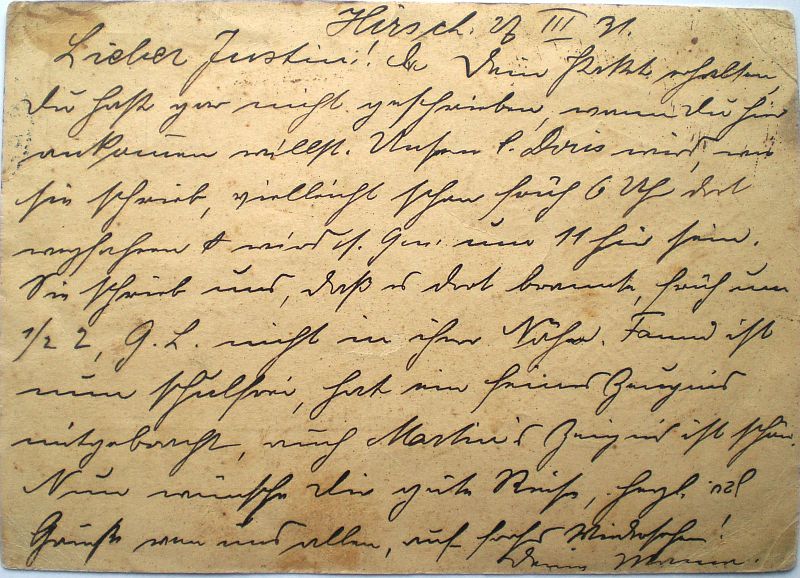 Hirsch. 27 III 31.
Lieber Justin! Dein Paket erhalten,
Du hast gar nicht geschrieben, wann Du hier
ankommen willst. Unsere l. Doris wird, wie
sie schrieb, vielleicht schon früh 6 Uhr dort
wegfahren & wird s. G. w. um 11 hier sein.
Sie schrieb uns, daß es dort brannte, früh um
1/2 2, G. L. nicht in ihrer Nähe. ist
nun schulfrei, hat ein feines Zeugnis
mitgebracht, auch Martin's Zeugnis ist schön.
Nun wünsche Dir gute Reise, herzl.
Grüße von uns allen, auf frohes Wiedersehen!
Deine Mama.